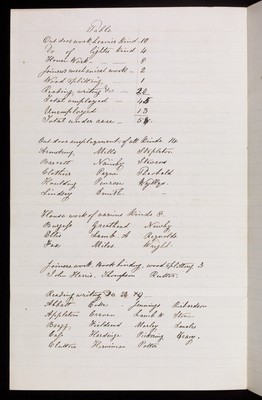 Table
Out door work heavier kind 10
Do of lighter kind 4
House Work 8
Joiners mechanical work - 2
Wood splitting 1
Reading, writing &c - 20
Total employed - 45
Unemployed 13
Total under care - 58
Out door employment of all kinds 14
Armstrong Mills Stapleton
Barrett Namby Stevens
Clothier Payne Theobald
Houlding Pearson
Lindsey Smith
House work of various kinds 8
Burgess Greathead Newby
Ellis Lamb. A Reynolds
Fox Miles Wright
Joiners work, Book binding, wood splitting 3
John Harris, Thompson Rutter
Reading writing &c
Abbott Cooke Jennings Richardson
Appleton Craven Lamb W
Bragg Fieldsend Morley
Hardinge Pickering
Clutton Herriman Potter